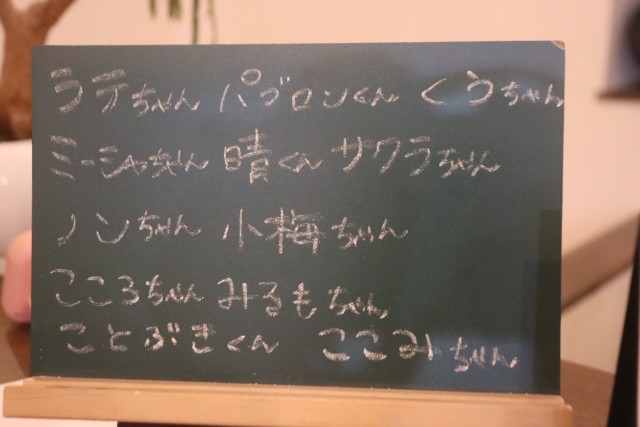 ラテちゃん パブロンくん くうちゃん
ミーシャちゃん 晴くん サクラちゃん
ノンちゃん 小梅ちゃん
こころちゃん みるもちゃん
ことぶきくん ここみちゃん